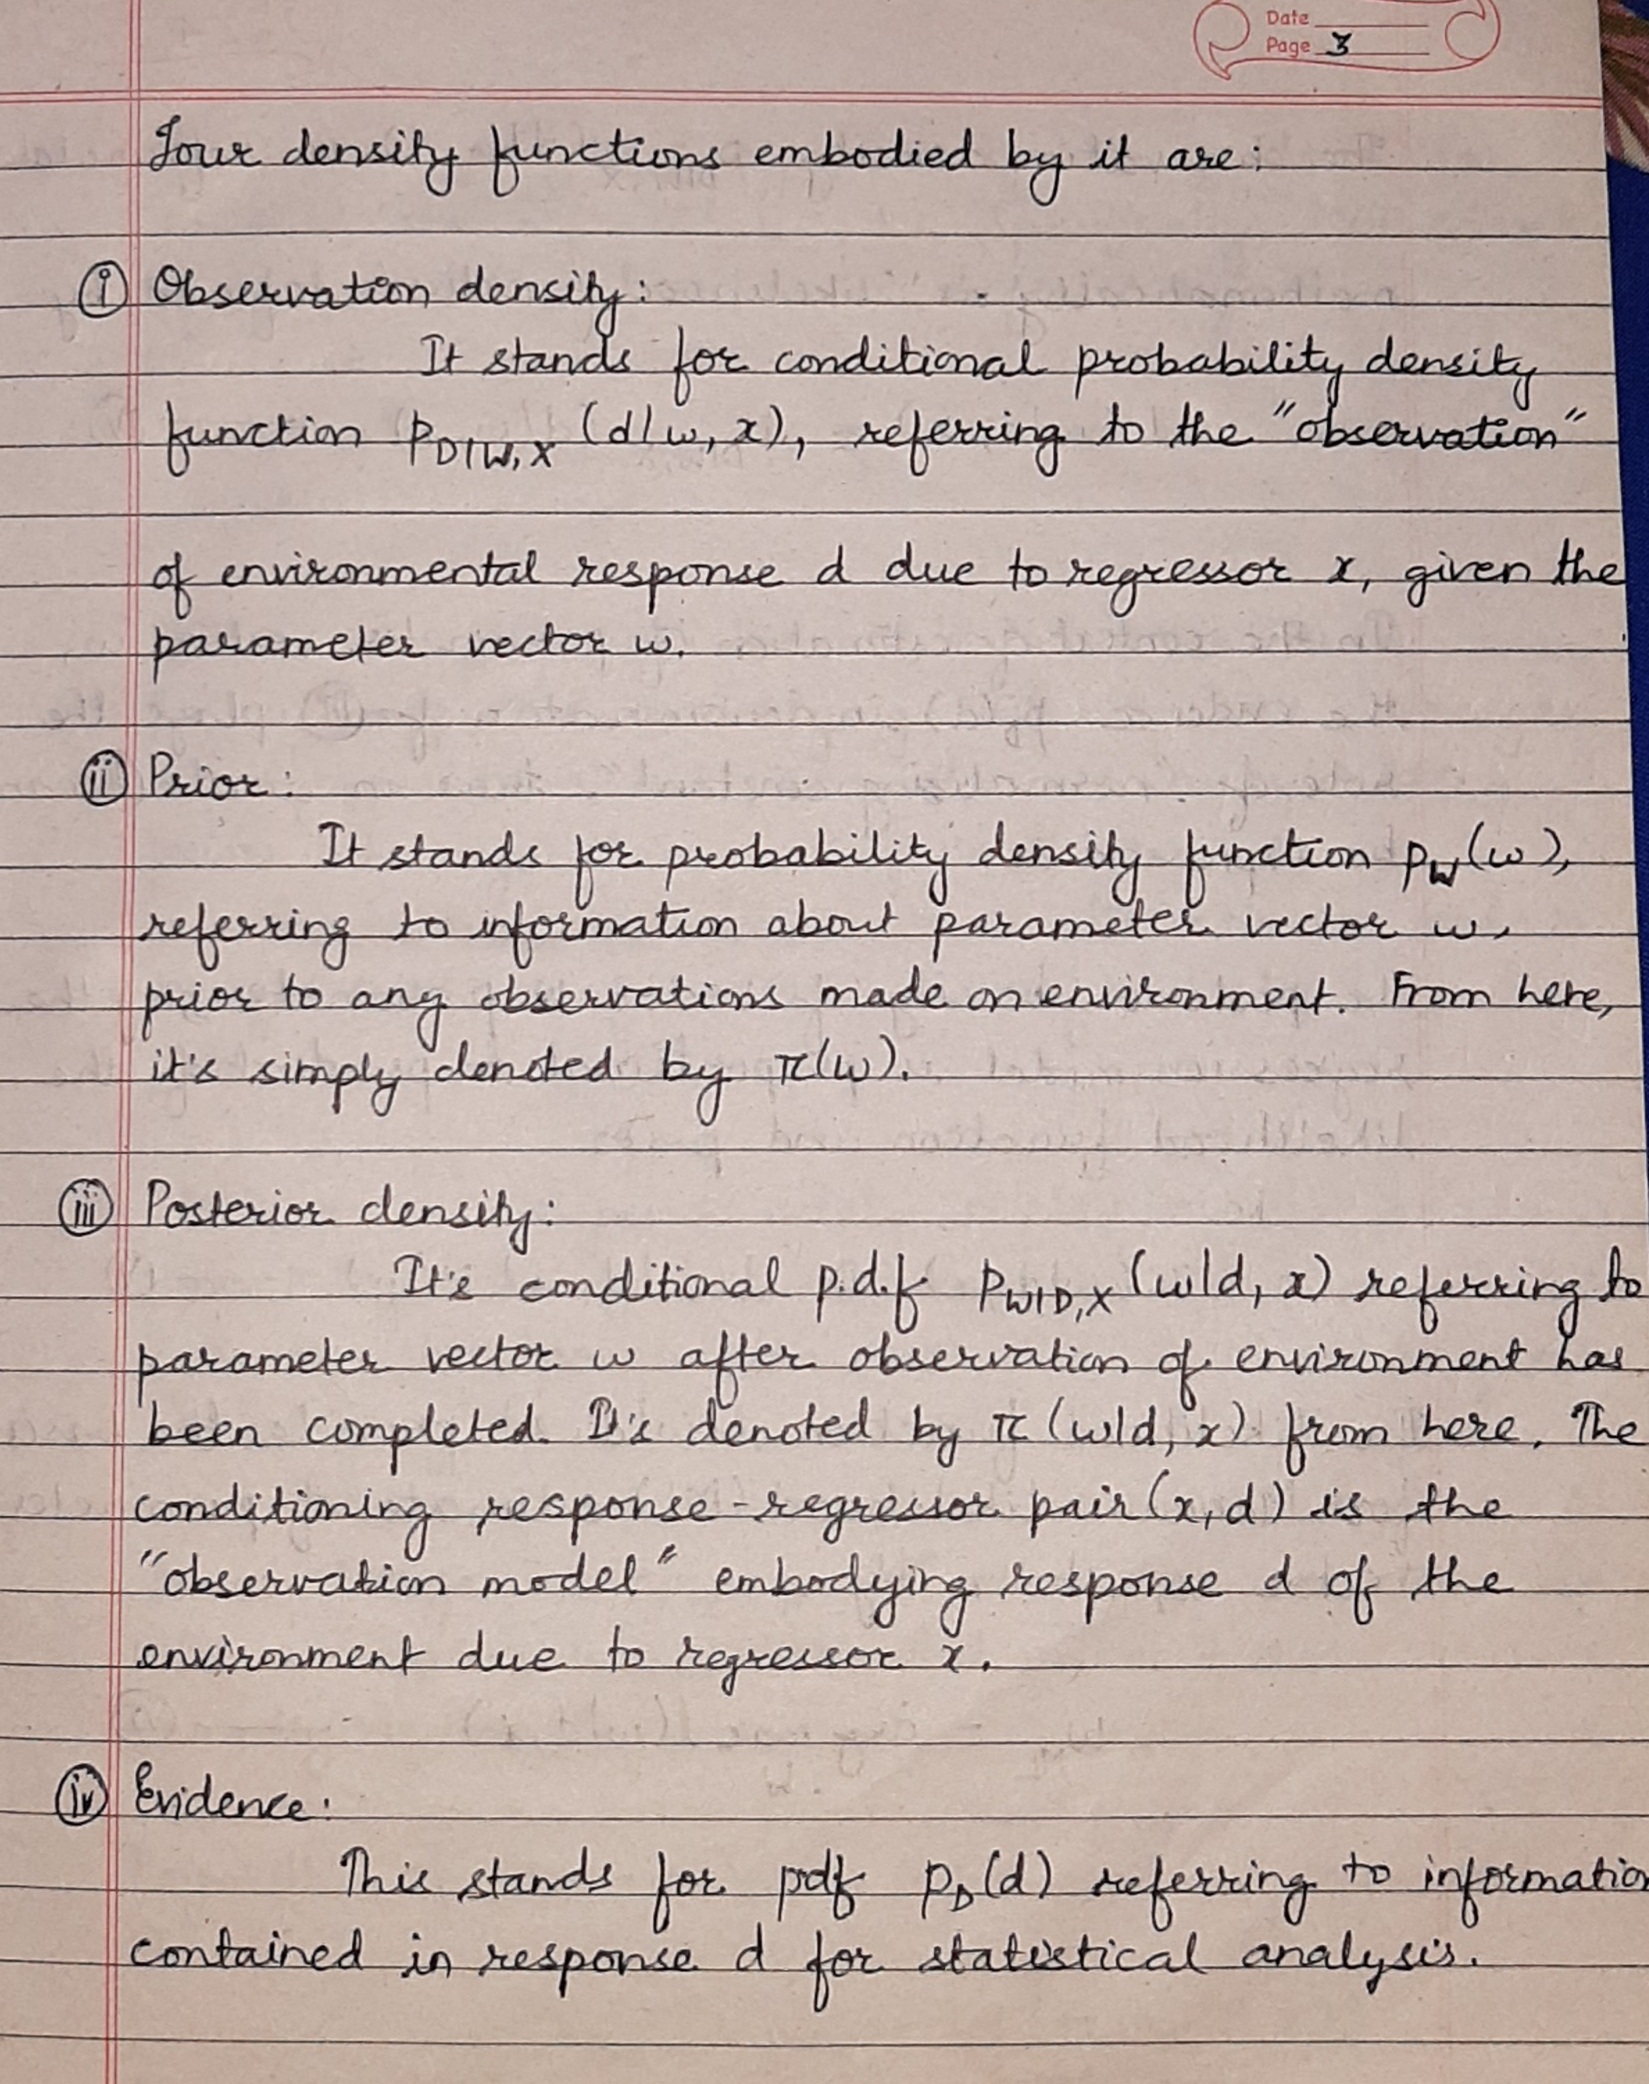 Date
Page 3
Four density functions embodied by it are:
(i) Observation density:
It stands for conditional probability density
function p_{D|W,X} (d|w, x), referring to the "observation"
of environmental response d due to regressor x, given the
parameter vector w.
(ii) Prior:
It stands for probability density function p_W(w),
referring to information about parameter vector w,
prior to any observations made on environment. From here,
it's simply denoted by π(w).
(iii) Posterior density:
It's conditional p.d.f p_{W|D,X} (w|d, x) referring to
parameter vector w after observation of environment has
been completed. It's denoted by π (w|d, x) from here. The
conditioning response-regressor pair (x, d) is the
"observation model" embodying response d of the
environment due to regressor x.
(iv) Evidence:
This stands for pdf p_D(d) referring to information
contained in response d for statistical analysis.